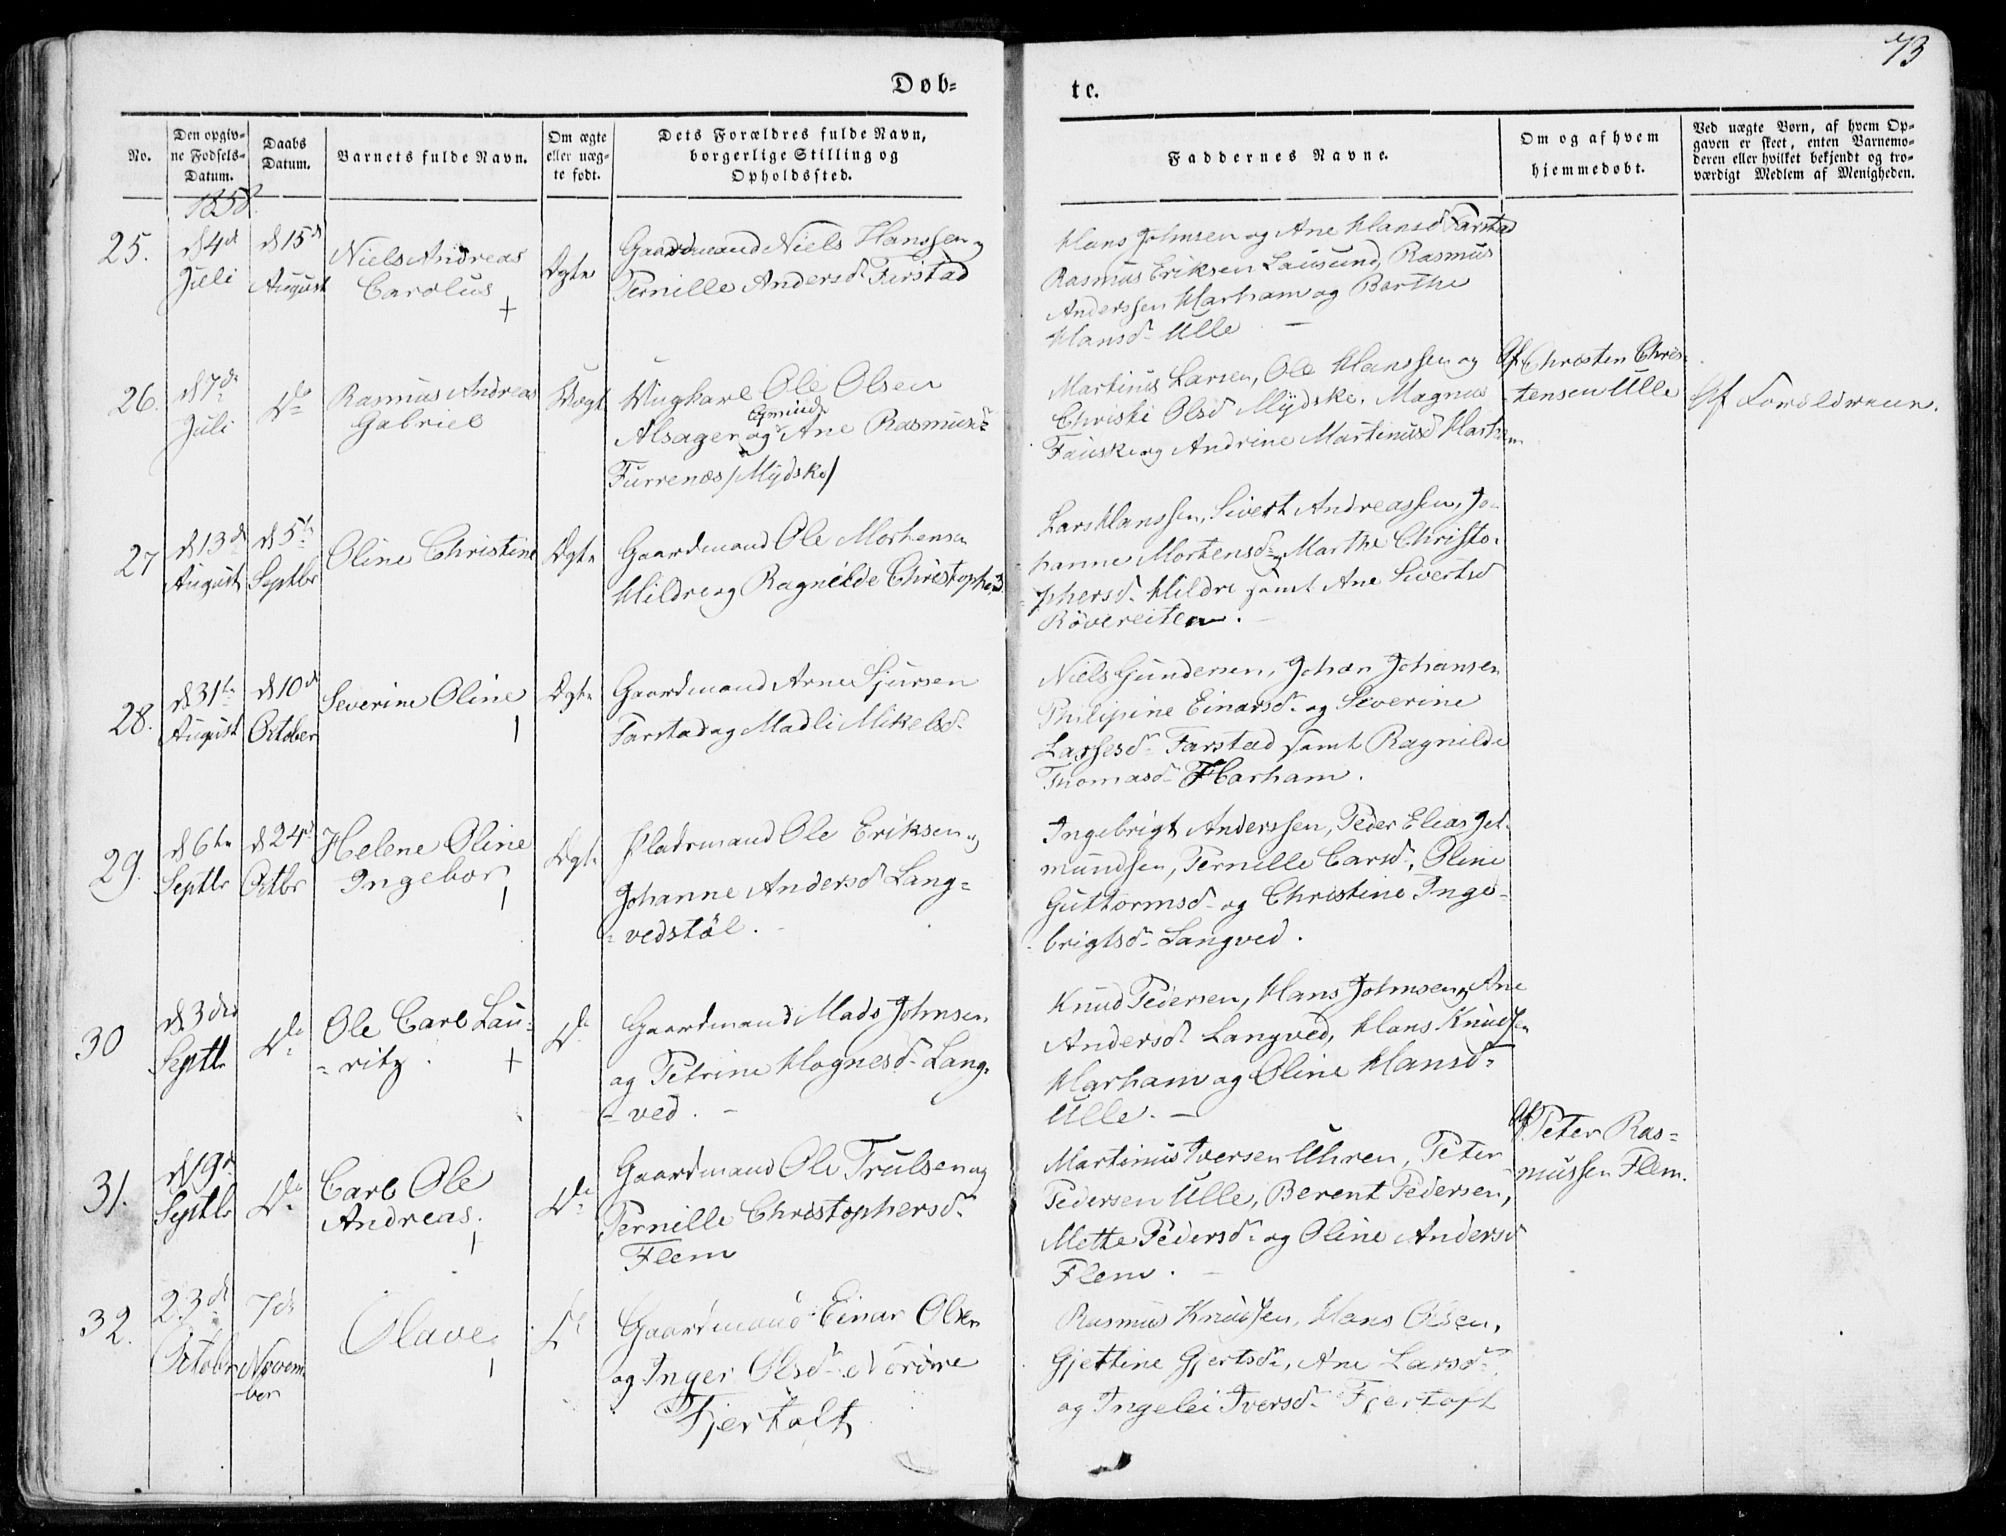 73
Døb-
te.
No.
Den opgiv-
ne Fødsels-
Datum.
Daabs
Datum.
Barnets fulde Navn.
Om ægte
eller uæg-
te født.
Dets Forældres fulde Navn,
borgerlige Stilling og
Opholdssted.
Faddernes Navne.
Om og af hvem
hjemmedøbt.
Ved uægte Børn, af hvem Op-
gaven er skeet, enten Barnemo-
deren eller hvilket bekjendt og tro-
værdigt Medlem af Menigheden.
1858.
25.
d 4d
Juli
d 15d
August
Niels Andreas
Carolus
+
Ægte
Gaardmand Niels Hanssen og
Pernille Andersd Farstad
Hans Johnsen og Ane Hansd Farstad
Rasmus Eriksen Lausund, Rasmus
Anderssen Harham og Berthe
Hansd Ulle
26.
d 7de
Juli
Do
Rasmus Andreas
Gabriel
Uægte
Ungkarl Ole Olsen
Alsager og Ane Rasmusd
Furrenæs / Mÿdske /
Martinus Larsen, Ole Hanssen og
Christi Olsd Mÿdske, Magnus
Fauske og Andrine Martinusd Harham
Af Christen Chris-
tensen Ulle
Af Forældrene.
27
d 13d
August
d 5te
Septbr
Oline Christine
Ægte
Gaardmand Ole Mortensen
Hildre og Ragnilde Christophersd
Lars Hanssen, Sivert Andreassen, Jo-
hanne Mortensd og Marthe Christo-
phersd Hildre samt Ane Sivertsd
Røvereiten.
28.
d 31te
August
d 10d
October
Severine Oline
Ægte
Gaardmand Arne Sjursen
Farstad og Madli Mikelsd
Niels Gundersen, Johan Johansen
Philipine Einarsd og Severine
Larsesd Farstad samt Ragnilde
Thomasd Harham.
29.
d 6te
Septbr
d 24d
Octbr
Helene Oline
Ingebor
Ægte
Pladsmand Ole Eriksen og
Johanne Andersd Lang=
= vedstøl.
Ingebrigt Anderssen, Peder Elias Jet-
mundsen, Pernille Larsd, Oline
Guttormsd og Christine Inge-
brigtsd Langved.
30
d 3die
Septbr
Do
Ole Carl Lau-
= ritz.
+
Do
Gaardmand Mads Johnsen
og Petrine Mognesd Lang-
- ved.
Knud Pedersen, Hans Johnsen og Ane
Andersd Langved, Hans Knudsen
Harham og Oline Hansd
Ulle.
31.
d 19d
Septbr
Do
Carl Ole
Andreas.
Do
Gaardmand Ole Trulsen og
Pernille Christophersd
Flem
Martinus Iversen Uhren, Peter
Pedersen Ulle, Berent Pedersen,
Mette Pedersd og Oline Andersd
Flem.
Af Peter Ras=
mussen Flem.
32.
23de
October
7de
Novem-
-ber
Olave
Do
Gaardmand Einar Olsen
og Inger Olsd Nordre
Fjertoft
Rasmus Knudsen, Hans Olsen,
Gjertine Gjertsd, Ane Larsd
og Ingelei Iversd Fjertoft